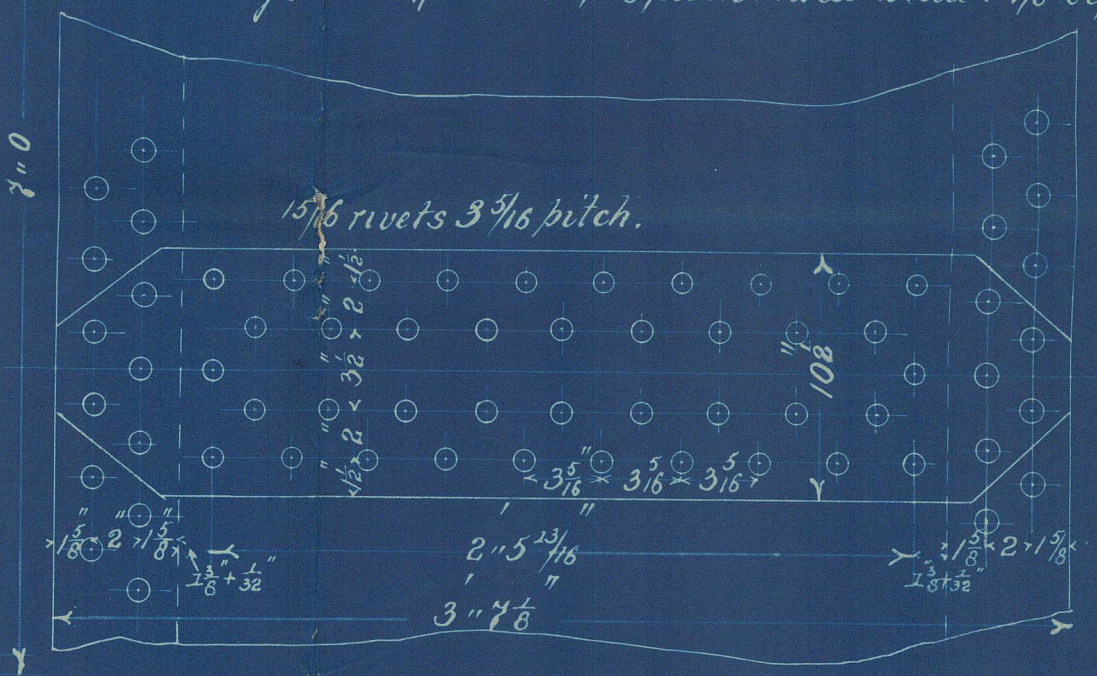 7"0
15/16 rivets 3 5/16 pitch.
1/2" > 2" < 3 1/2" > 2" < 1/2"
10 1/2"
3 5/16" 3 5/16 3 5/16
1 5/8" 2" 1 5/8"
1 3/8" + 1/32"
2' " 5 13/16"
1 3/8" + 1/32"
1 5/8" 2 1 5/8
3' " 7 1/8"